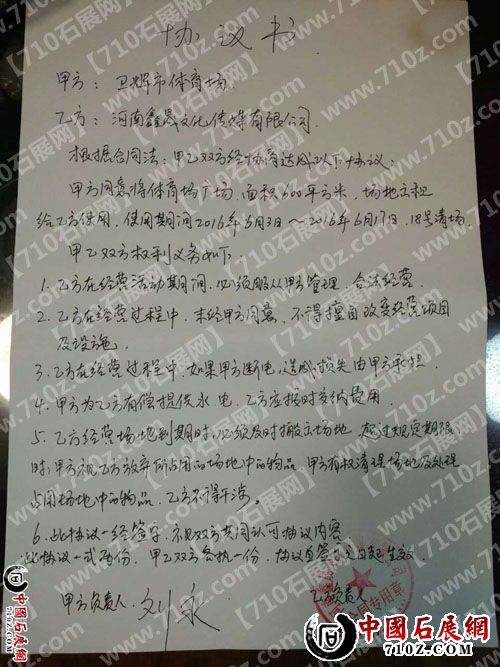 协议书
甲方：卫辉市体育场
乙方：河南鑫晟文化传媒有限公司
根据合同法：甲乙双方经协商达成以下协议：
甲方同意将体育场广场，面积600平方米，场地立租
给乙方使用，使用期间2016年6月3日～2016年6月17日，18号清场。
甲乙双方权利义务如下
1、乙方在经营活动期间，必须服从甲方管理，合法经营。
2、乙方在经营过程中，未经甲方同意，不得擅自改变经营项目
及设施。
3、乙方在经营过程中，如果甲方断电，造成损失由甲方承担
4、甲方为乙方有偿提供水、电，乙方应按时交纳费用
5、乙方经营场地到期时，必须及时搬出场地，超过规定期限
时，甲方视乙方放弃所占用的场地中的物品，甲方有权清理场地及处理
占用场地中的物品，乙方不得干涉。
6、此协议一经签字，视双方共同认可协议内容
此协议一式两份，甲乙双方各执一份，协议自签字之日起生效
甲方负责人：刘永
乙方负责人
合同专用章
【710石展网】
www.710z.com
中國石展網
中國石展網
www.710z.com